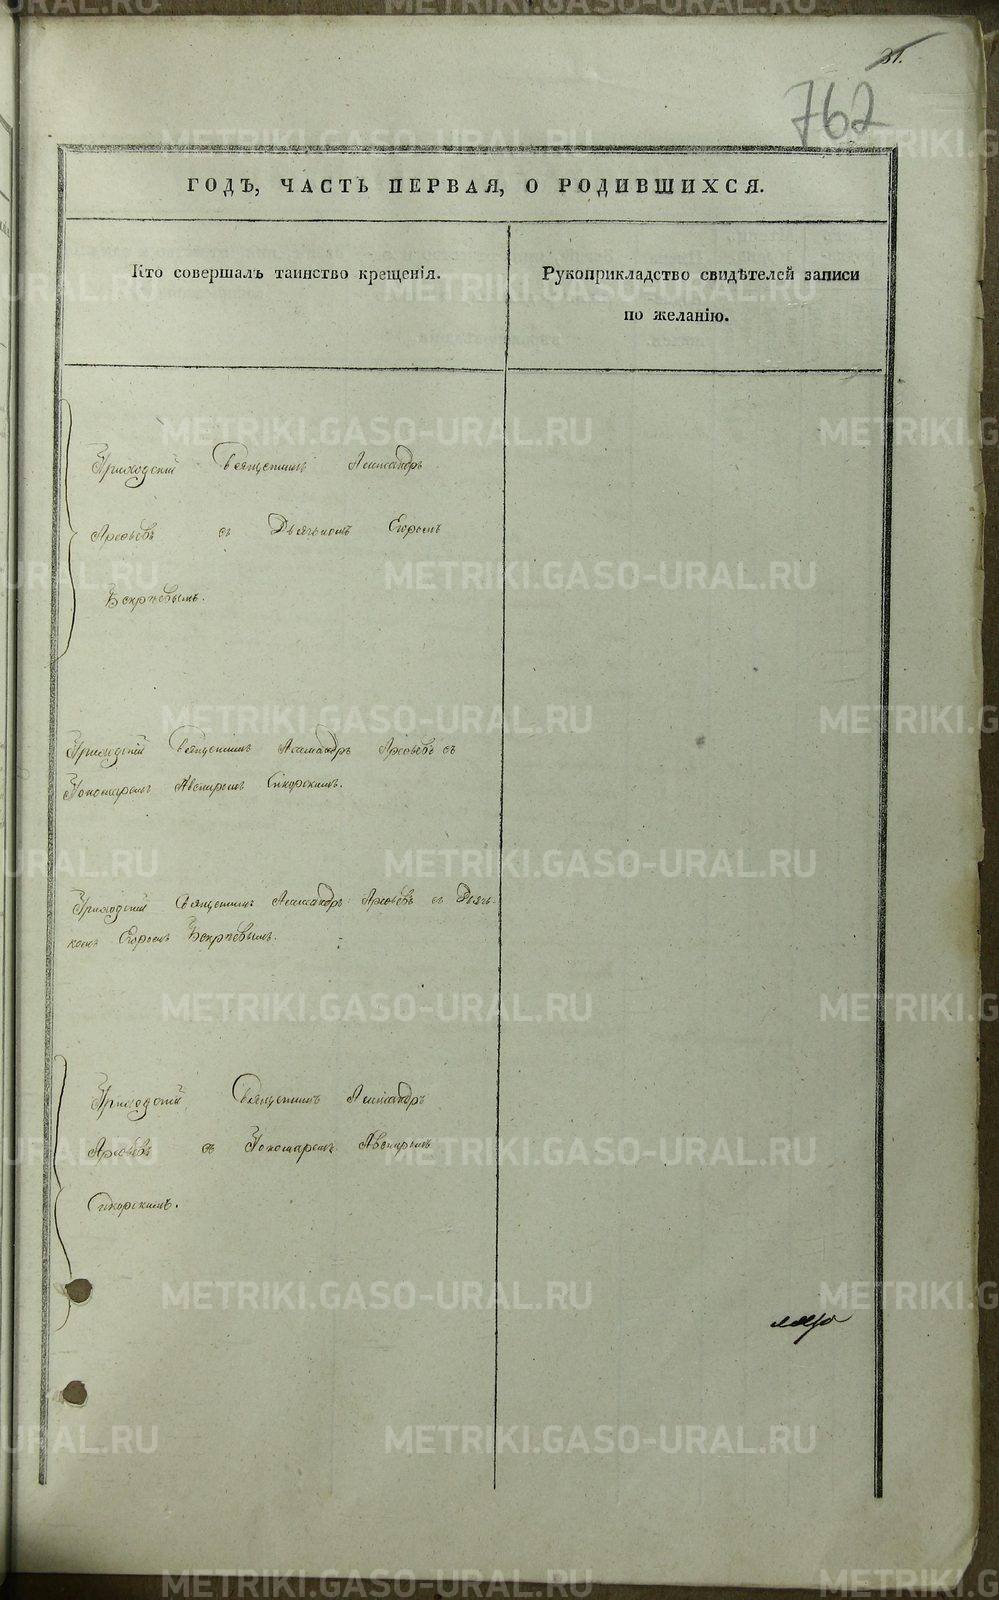 31.
762
ГОДЪ, ЧАСТЬ ПЕРВАЯ, О РОДИВШИХСЯ.
Кто совершалъ таинство крещенія.
Рукоприкладство свидѣтелей записи
по желанію.
Приходскій Священникъ Александръ
Арефьевъ съ Дьячкомъ Егоромъ
Приходскій Священникъ Александръ Арефьевъ съ
Пономаремъ Авениромъ Сикорскимъ.
Приходскій Священникъ Александръ Арефьевъ съ Дьяч-
комъ Егоромъ
Приходскій Священникъ Александръ
Арефьевъ съ Пономаремъ Авениромъ
Сикорскимъ.
METRIKI.GASO-URAL.RU